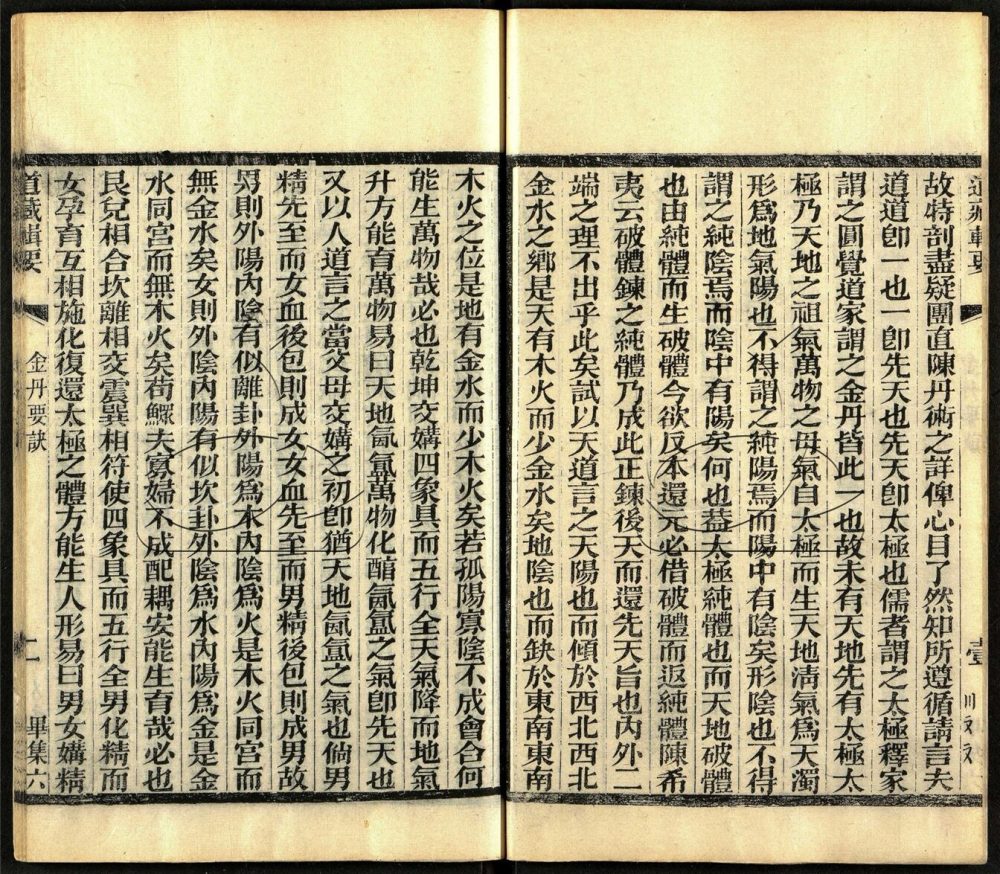 道藏輯要
故特剖盡疑團直陳丹術之詳俾心目了然知所遵循請言夫
道道卽一也一卽先天也先天卽太極也儒者謂之太極釋家
謂之圓覺道家謂之金丹皆此一也故未有天地先有太極太
極乃天地之祖氣萬物之母氣自太極而生天地淸氣爲天濁
形爲地氣陽也不得謂之純陽焉而陽中有陰矣形陰也不得
謂之純陰焉而陰中有陽矣何也蓋太極純體也而天地破體
也由純體而生破體今欲反本還元必借破體而返純體陳希
夷云破體鍊之純體乃成此正鍊後天而還先天旨也內外二
端之理不出乎此矣試以天道言之天陽也而傾於西北西北
金水之鄕是天有木火而少金水矣地陰也而缺於東南東南
木火之位是地有金水而少木火矣若孤陽寡陰不成會合何
能生萬物哉必也乾坤交媾四象具而五行全天氣降而地氣
升方能育萬物易曰天地氤氳萬物化醕氤氳之氣卽先天也
又以人道言之當父母交媾之初卽猶天地氤氳之氣也倘男
精先至而女血後包則成女女血先至而男精後包則成男故
男則外陽內陰有似離卦外陽爲木內陰爲火是木火同宮而
無金水矣女則外陰內陽有似坎卦外陰爲水內陽爲金是金
水同宮而無木火矣苟鰥夫寡婦不成配耦安能生育哉必也
艮兌相合坎離相交震巽相符使四象具而五行全男化精而
女孕育互相施化復還太極之體方能生人形易曰男女媾精
道藏輯要
金丹要訣
畢集六